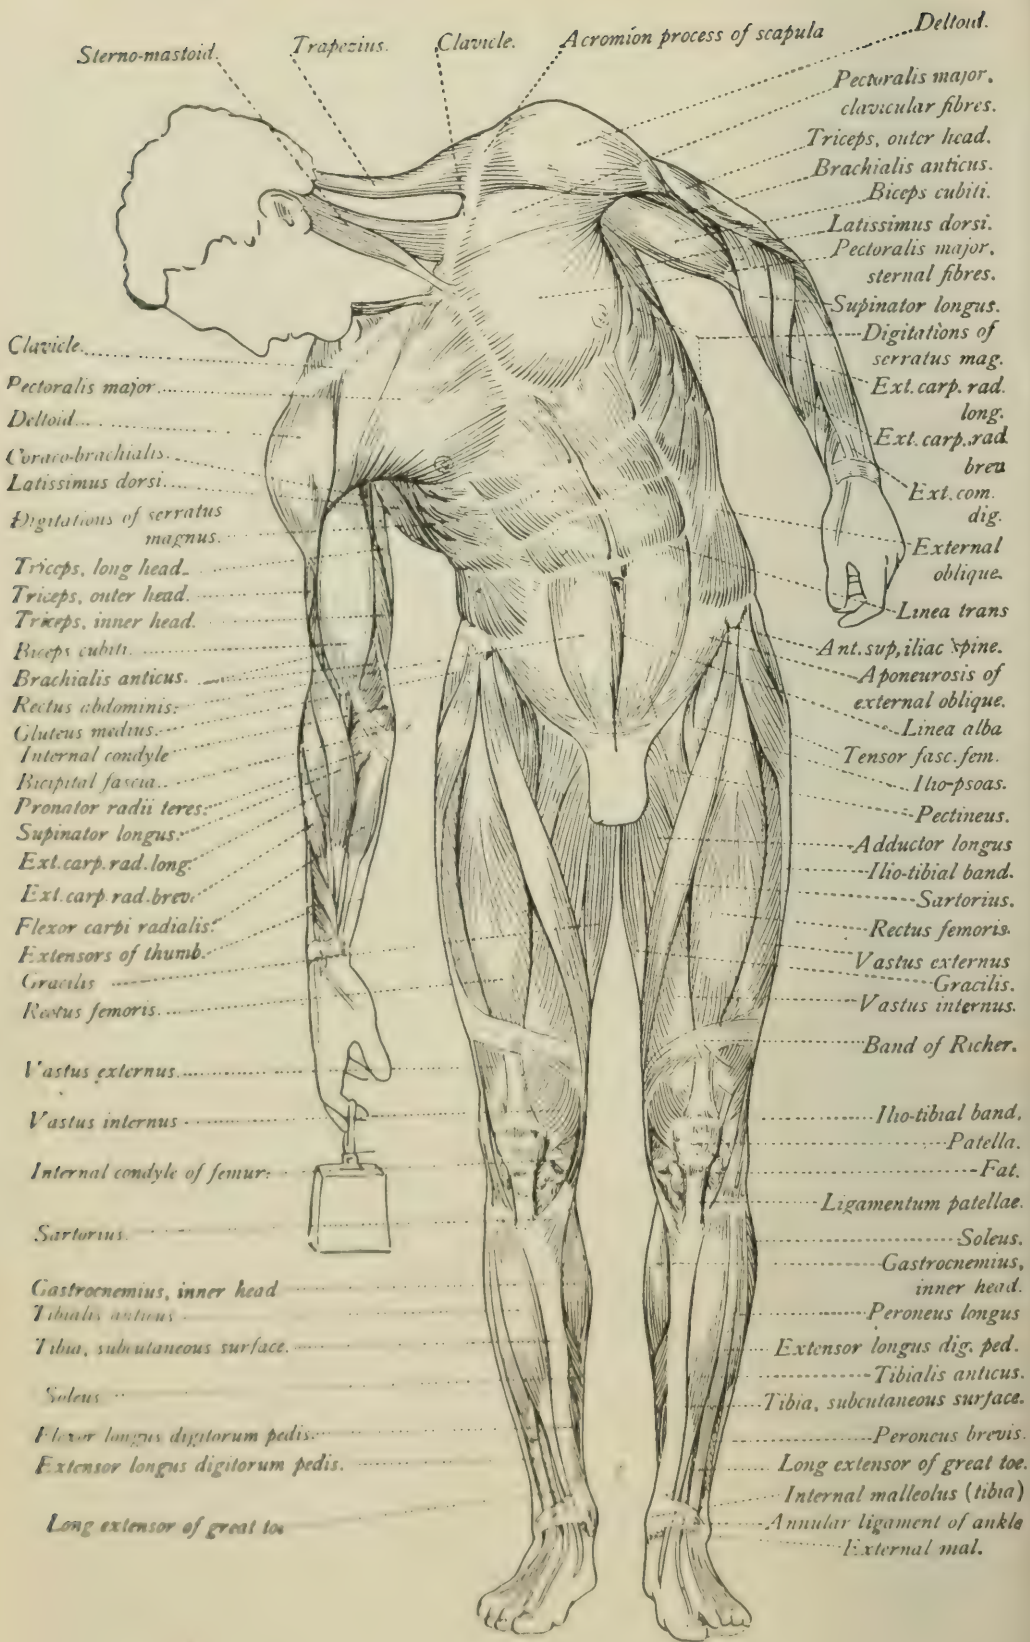 Sterno-mastoid.
Trapezius.
Clavicle.
Acromion process of scapula
Deltoid.
Pectoralis major,
clavicular fibres.
Triceps, outer head.
Brachialis anticus.
Biceps cubiti.
Latissimus dorsi.
Pectoralis major,
sternal fibres.
Supinator longus.
Digitations of
serratus mag.
Ext. carp. rad.
long.
Ext. carp. rad.
brev
Ext. com.
dig.
External
oblique.
Linea trans
Ant. sup, iliac spine.
Aponeurosis of
external oblique.
Linea alba
Tensor fasc. fem.
Ilio-psoas.
Pectineus.
Adductor longus
Ilio-tibial band.
Sartorius.
Rectus femoris.
Vastus externus
Gracilis.
Vastus internus.
Band of Richer.
Ilio-tibial band.
Patella.
Fat.
Ligamentum patellae.
Soleus.
Gastrocnemius,
inner head.
Peroneus longus
Extensor longus dig. ped.
Tibialis anticus.
Tibia, subcutaneous surface.
Peroneus brevis.
Long extensor of great toe.
Internal malleolus (tibia)
Annular ligament of ankle
External mal.
Clavicle.
Pectoralis major
Deltoid.
Coraco-brachialis.
Latissimus dorsi.
Digitations of serratus
magnus.
Triceps, long head.
Triceps, outer head.
Triceps, inner head.
Biceps cubiti.
Brachialis anticus.
Rectus abdominis.
Gluteus medius.
Internal condyle
Bicipital fascia.
Pronator radii teres.
Supinator longus.
Ext. carp. rad. long.
Ext. carp. rad. brev.
Flexor carpi radialis.
Extensors of thumb.
Gracilis
Rectus femoris.
Vastus externus.
Vastus internus
Internal condyle of femur.
Sartorius.
Gastrocnemius, inner head
Tibialis anticus
Tibia, subcutaneous surface.
Soleus
Flexor longus digitorum pedis.
Extensor longus digitorum pedis.
Long extensor of great toe